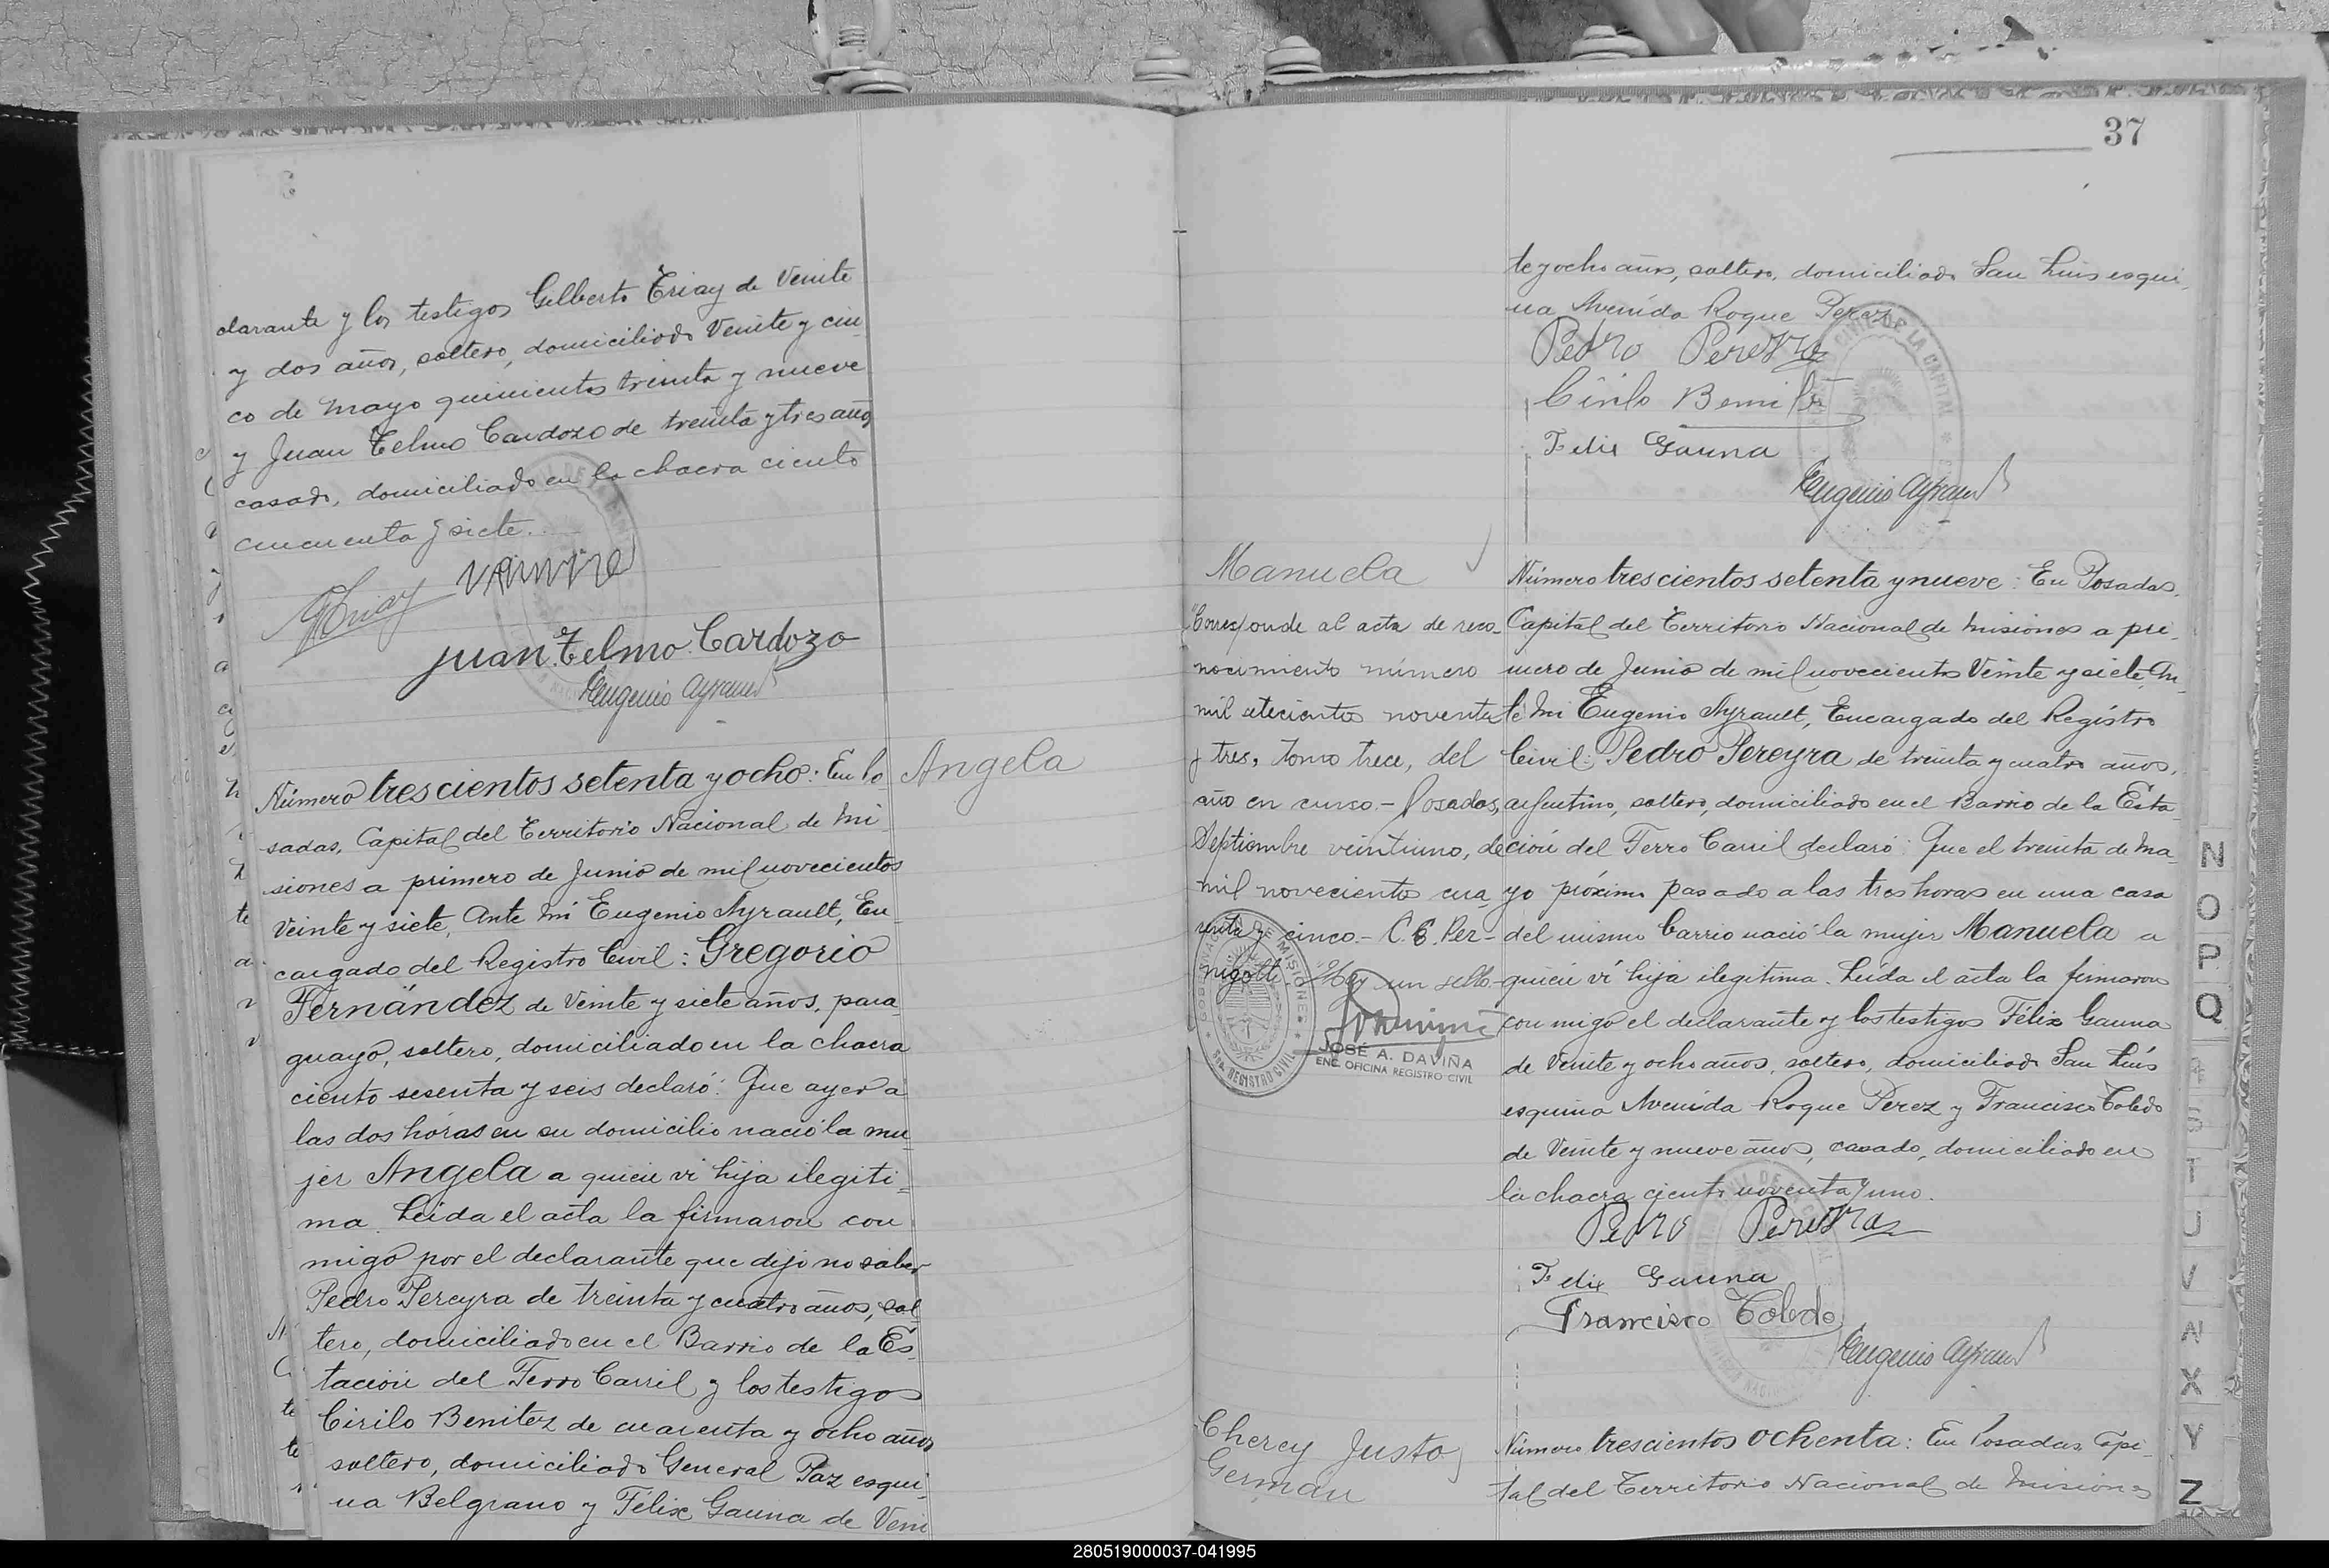 clarante y los testigos Gilberto Triay de Veinte
y dos años, soltero, domiciliado Veinte y cin
co de Mayo quinientos treinta y nueve
y Juan Telmo Cardozo de treinta y tres años
casado, domiciliado en la chacra ciento
cincuenta y siete.
GTriay
Juan Telmo Cardozo
Eugenio Ayrault
Número trescientos setenta y ocho: En Po
sadas, Capital del Territorio Nacional de Mi
siones a primero de Junio de mil novecientos
Veinte y siete, Ante Mí Eugenio Ayrault, En
cargado del Registro Civil: Gregorio
Fernández de Veinte y siete años, para
guayo, soltero, domiciliado en la chacra
ciento sesenta y seis declaró: Que ayer a
las dos horas en su domicilio nació la mu
jer Angela a quien vi hija ilegiti=
ma. Leída el acta la firmaron con
migo por el declarante que dijo no saber
Pedro Pereyra de treinta y cuatro años, sol
tero, domiciliado en el Barrio de la Es
tación del Ferro Carril y los testigos
Cirilo Benitez de cuarenta y ocho años
soltero, domiciliado General Paz esqui
na Belgrano y Félix Gauna de Vein
Angela
37
te y ocho años, soltero, domiciliado San Luis esqui
na Avenida Roque Perez
Pedro Pereyra
Cirilo Benitez
Felix Gauna
Eugenio Ayrault
Manuela
"Corresponde al acta de reco-
nocimiento número
mil setecientos noventa
y tres, tomo trece, del
año en curso.- Posadas,
Septiembre veintiuno, de
mil novecientos cua
renta y cinco.- Hay un sello-
GOBERNACION DE MISIONES
REGISTRO CIVIL
JOSÉ A. DAVIÑA
ENC. OFICINA REGISTRO CIVIL
Número trescientos setenta y nueve: En Posadas,
Capital del Territorio Nacional de Misiones a pri-
mero de Junio de mil novecientos Veinte y siete, An
te Mi Eugenio Ayrault, Encargado del Registro
Civil: Pedro Pereyra de treinta y cuatro años,
argentino, soltero, domiciliado en el Barrio de la Esta
ción del Ferro Carril declaró: Que el treinta de Ma
yo próximo pasado a las tres horas en una casa
del mismo barrio nació la mujer Manuela a
quien ví hija ilegitima. Leída el acta la firmaron
conmigo el declarante y los testigos Félix Gauna
de Veinte y ocho años, soltero, domiciliado San Luís
esquina Avenida Roque Perez y Francisco Toledo
de Veinte y nueve años, casado, domiciliado en
la chacra ciento noventa y uno.
Pedro Pereyra
Felix Gauna
Francisco Toledo
Eugenio Ayrault
Cherey Justo
German
Número trescientos ochenta: En Posadas, Capi-
tal del Territorio Nacional de Misiones
N
O
P
Q
S
T
U
V
X
Y
Z
280519000037-041995